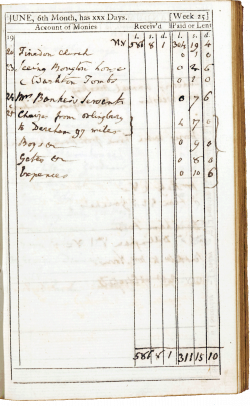 JUNE, 6th Month, has xxx Days. [Week 25]
Account of Monies Receiv'd Paid or Lent
l. s. d. l. s. d.
586 8 1 304 19 4
20 Finedon Church 0 1 0
23 seeing Boughton house 0 2 6
Warkton Tombs 0 1 0
24 Mr Bankes's Servants 0 7 6
25 Chaises from Orlingbury
to Dereham 97 miles 4 7 0
Boys on 0 9 0
Gates on 0 8 0
Expences 0 10 6
586 8 1 311 15 10